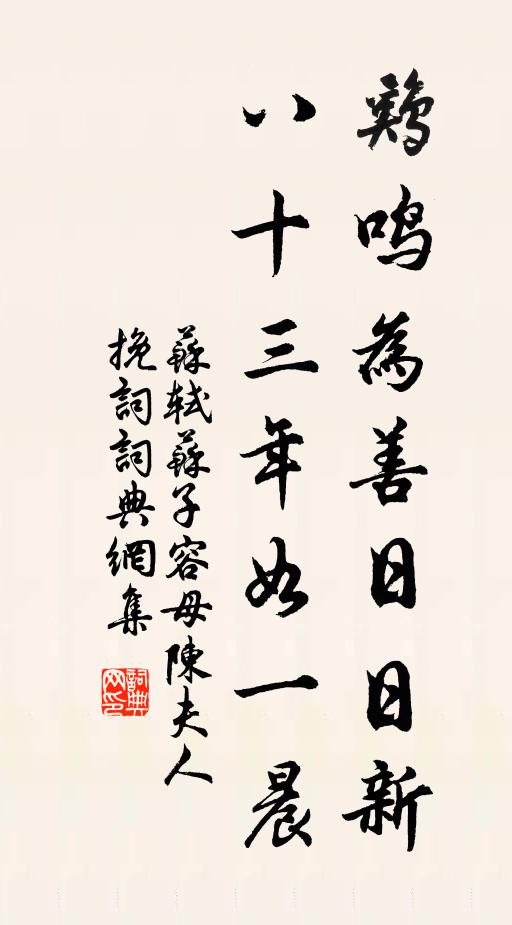 鷄鳴為善日日新
八十三年如一晨
蘇軾蘇子容母陳夫人
挽詞詞典網集
詞典网印